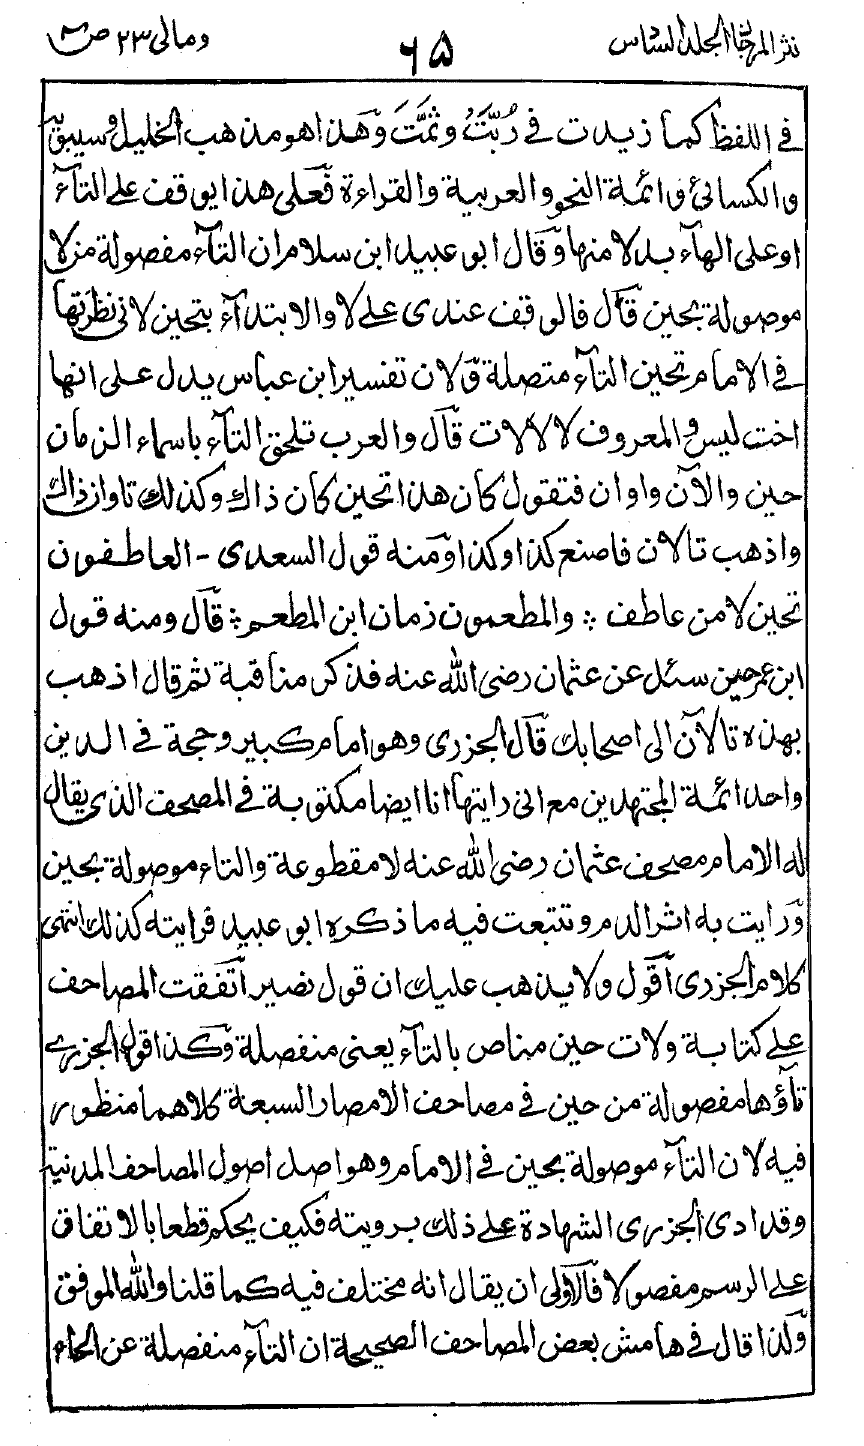 نثر المرجان المجلد السادس ٦٥ ومالى ٢٣ ص
فى اللفظ كما زيدت فى رُبَّتَ وثمَّتَ وهذا هو مذهب الخليل وسيبويه
والكسائى وائمة النحو والعربية والقراءة فعلى هذا يوقف على التآء
او على الهآء بدلا منها وقال ابو عبيد ابن سلام ان التآء مفصولة من لا
موصولة بحين قال فالوقف عندى على لا والابتدآء بتحين لانى نظرتها
فى الامام تحين التآء متصلة ولان تفسير ابن عباس يدل على انها
اخت ليس والمعروف لا لا لات قال والعرب تلحق التآء باسماء الزمان
حين والآن واوان فتقول كان هذا تحين كان ذاك وكذلك تاوان ذاك
واذهب تالان فاصنع كذا وكذا ومنه قول السعدى - العاطفون
تحين لا من عاطف ؞ والمطعمون زمان ابن المطعم ؞ قال ومنه قول
ابن عمر حين سئل عن عثمان رضى الله عنه فذكر مناقبة ثم قال اذهب
بهذه تالآن الى اصحابك قال الجزرى وهو امام كبير وحجة فى الدين
واحد ائمة المجتهدين مع انى رايتها انا ايضا مكتوبة فى المصحف الذى يقال
له الامام مصحف عثمان رضى الله عنه لا مقطوعة والتاء موصولة بحين
ورايت به اثر الدم وتتبعت فيه ما ذكره ابو عبيد فرايته كذلك انتهى
كلام الجزرى اقول ولا يذهب عليك ان قول نصير اتفقت المصاحف
على كتابة ولات حين مناص بالتآء يعنى منفصلة وكذا قول الجزرى
تآؤها مفصولة من حين فى مصاحف الامصار السبعة كلاهما منظور
فيه لان التآء موصولة بحين فى الامام وهو اصل اصول المصاحف المدنية
وقد ادى الجزرى الشهادة على ذلك برويته فكيف يحكم قطعا بالاتفاق
على الرسم مفصولا فالاولى ان يقال انه مختلف فيه كما قلنا والله الموفق
ولذا قال فى هامش بعض المصاحف الصحيحة ان التآء منفصلة عن الحاء